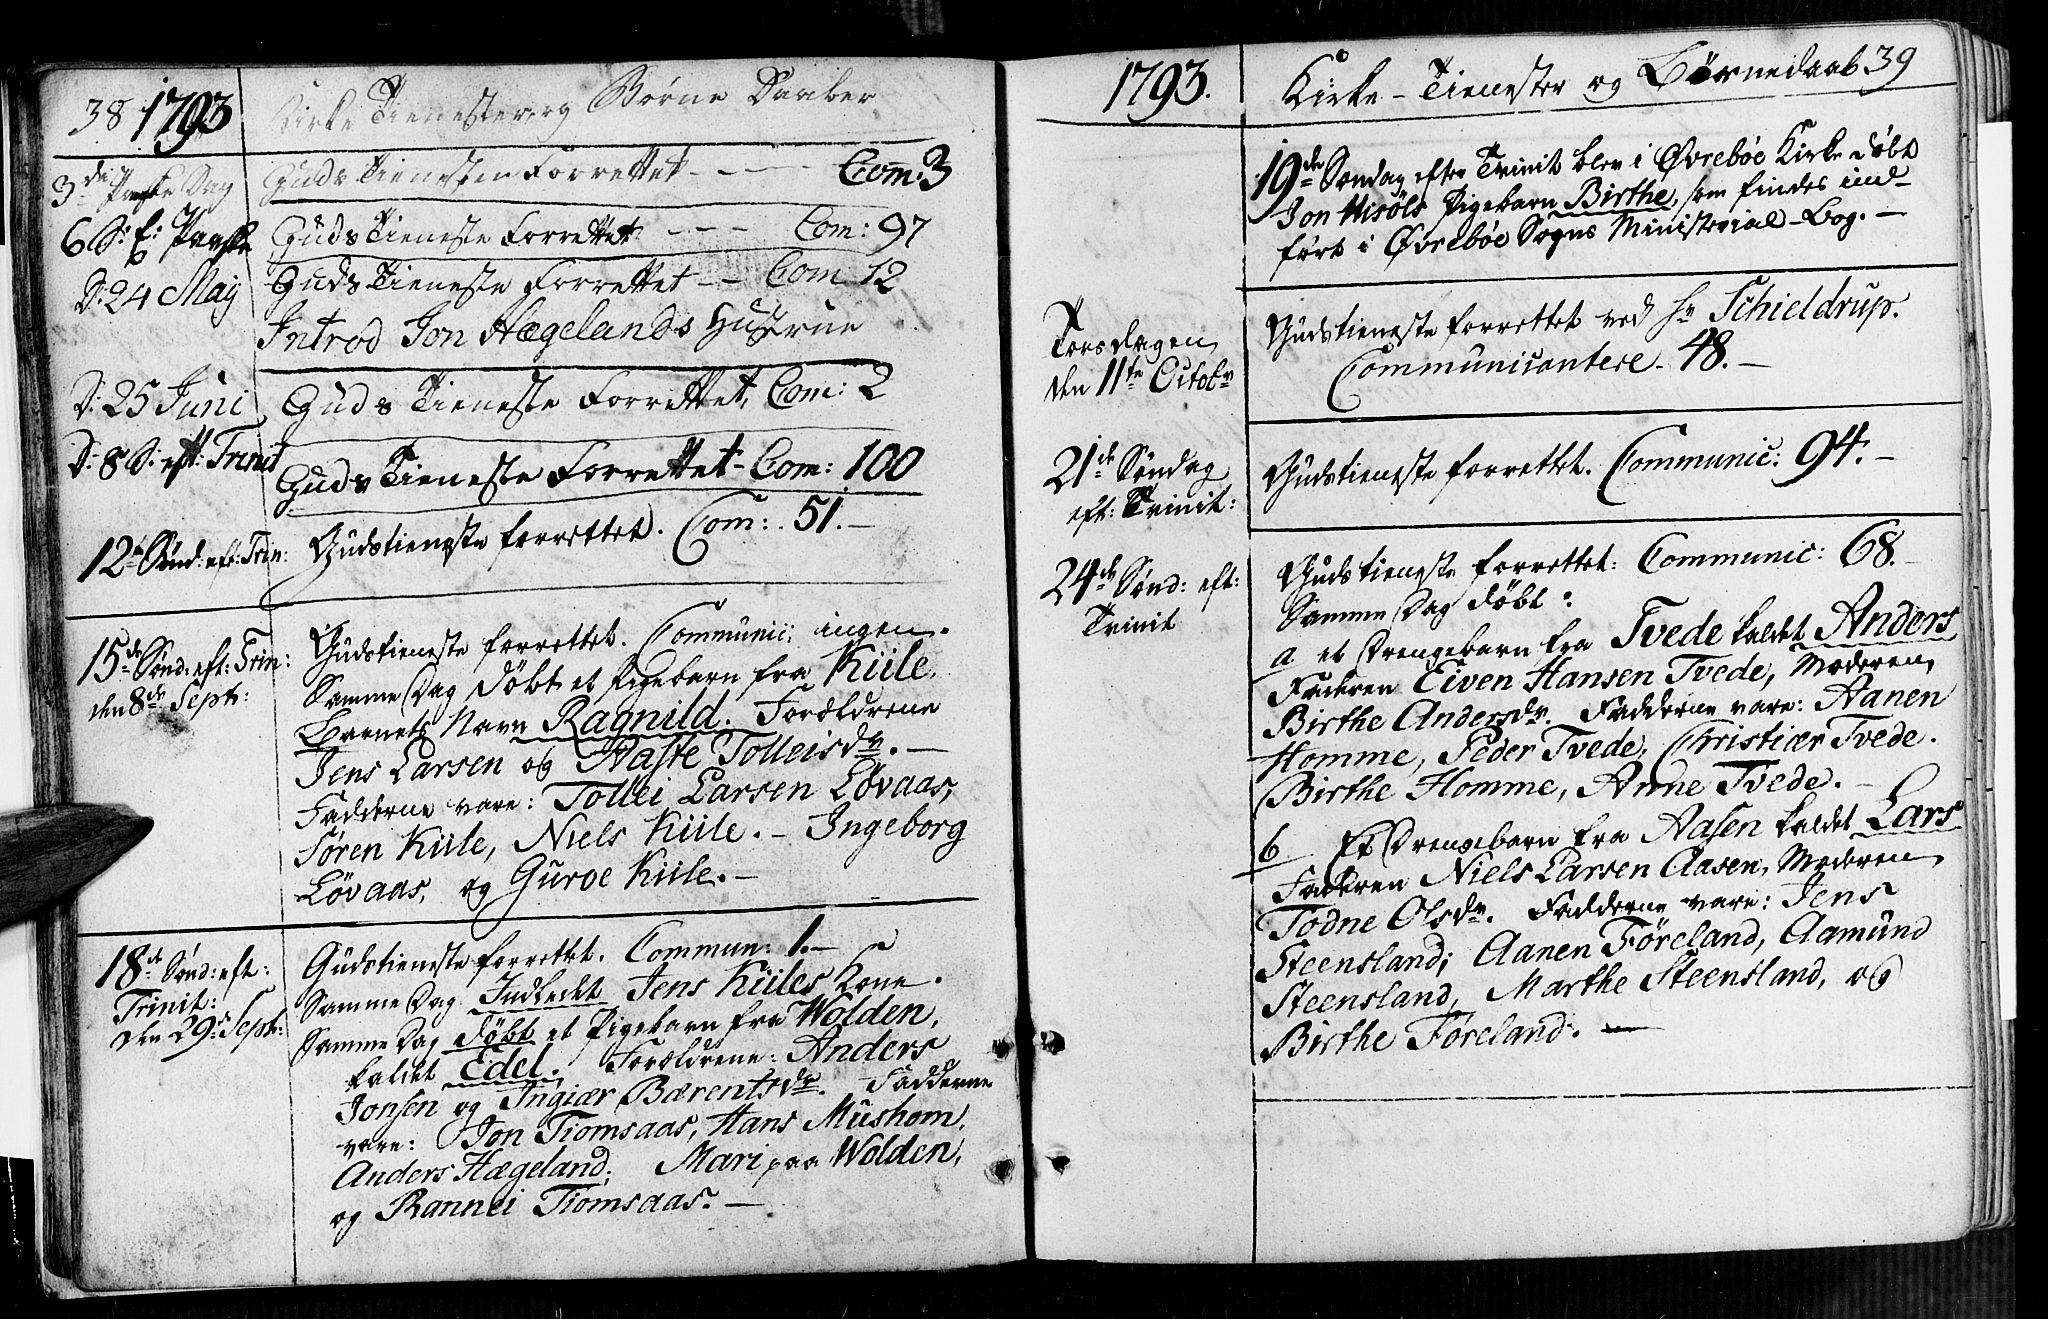 38 1793 Kirke Tienester og Børne Daaber
3de Paaske Dag Guds Tienesten Forrettet - - - Com: 3
6 S: E: Paaske Guds Tieneste Forrettet - - - Com: 97
D: 24 May Guds Tieneste Forrettet - - Com 12
Introd Jon Hægelands Hustrue
D: 25 Juni Guds Tieneste Forrettet, Com: 2
D: 8 S: eft: Trinit Guds Tieneste Forrettet - Com: 100
12te Sønd: eft: Trin: Gudstieneste forrettet. Com: 51. -
15de Sønd: eft: Trin: Gudstieneste forrettet. Communic: ingen.
den 8de Sept: Samme Dag døbt et Pigebarn fra Kiile,
Barnets Navn Ragnild. Forældrene
Jens Larsen og Aaste Tolleisdr. -
Fadderne vare: Tollei Larsen Løvaas,
Søren Kiile, Niels Kiile. - Ingeborg
Løvaas, og Guroe Kiile. -
18de Sønd: eft: Gudstieneste forrettet. Commun: 1. -
Trinit: Samme Dag Indledet Jens Kiiles Kone.
den 29de Sept: Samme Dag døbt et Pigebarn fra Wolden,
kaldet Edel. Forældrene: Anders
Jonsen og Ingiær Bærentsdr. Fadderne
vare: Jon Tiomsaas, Hans Mushom,
Anders Hægeland; Mari paa Wolden,
og Rannei Tiomsaas. -
1793. Kirke - Tienester og Børnedaab 39
19de Søndag efter Trinit blev i Øvrebøe Kirke døbt
Jon Hisøls Pigebarn Birthe, som findes ind-
ført i Øvrebøe Sogns Ministerial-Bog. -
Torsdagen Gudstieneste forrettet ved Hr Schieldrup.
den 11te Octobr Communicantere - 48. -
21de Søndag Gudstieneste forrettet. Communic: 94. -
eft: Trinit:
24de Sønd: eft: Gudstieneste forrettet: Communic: 68. -
Trinit Samme Dag døbt:
a et Drengebarn fra Tvede kaldet Anders
Faderen Eiven Hansen Tvede, Moderen
Birthe Andersdr. Fadderne vare: Aanen
Homme, Peder Tvede, Christiær Tvede.
Birthe Homme, Anne Tvede. -
b Et Drengebarn fra Aasen kaldet Lars
Faderen Niels Larsen Aasen, Moderen
Todne Olsdr. Fadderne vare: Jens
Steensland; Aanen Føreland, Aamund
Steensland, Marthe Steensland, og
Birthe Føreland. -